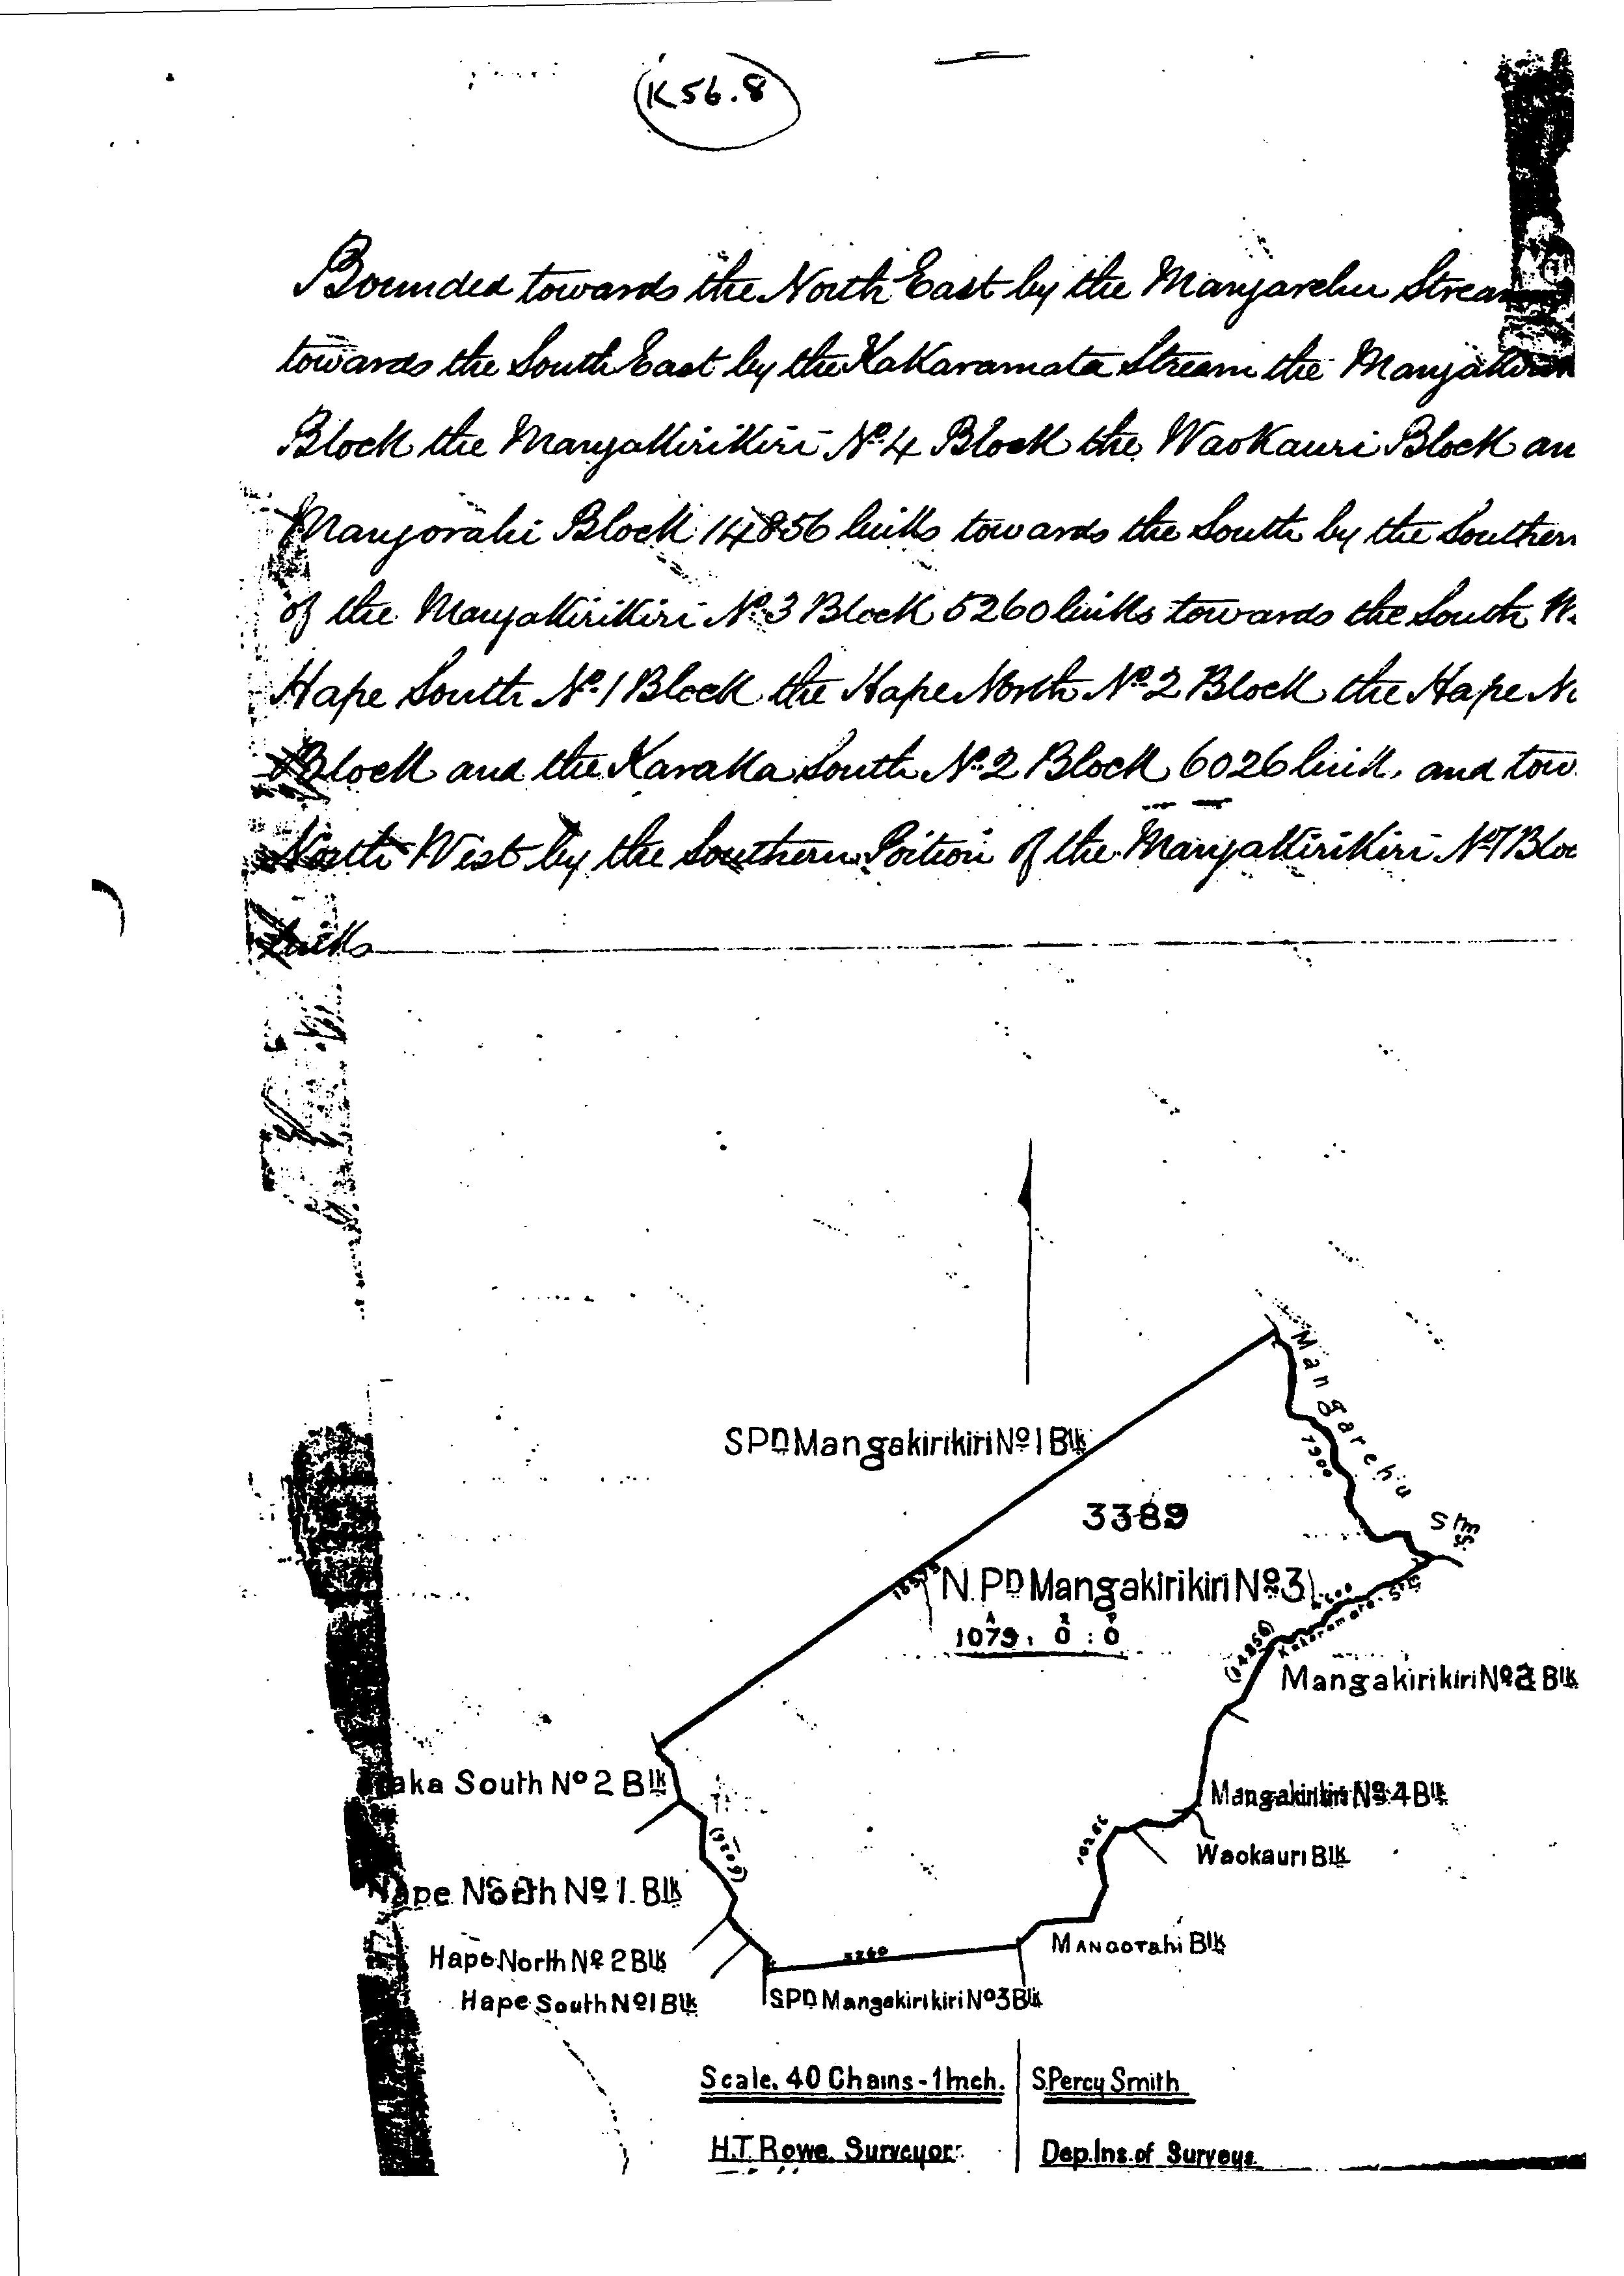 K56.8
Bounded towards the North East by the Mangarehu Stream
towards the South East by the Kakaramata Stream the
Block the Mangakirikiri No. 4 Block the Waokauri Block an
Mangorahi Block 14856 links towards the South by the Southern
of the Mangakirikiri No. 3 Block 5260 links towards the South W
Hape South No. 1 Block the Hape North No. 2 Block the Hape No
Block and the Karaka South No. 2 Block 6026 link, and tow
North West by the Southern Poition of the Mangakirikiri No 1 Bloc
Links
SPD Mangakirikiri No 1 Blk
Mangarehu Stm
7900
3389
N.PD Mangakirikiri No 3
A R P
1079 : 0 : 0
4600
Kakaramata Stm
(14856)
Mangakirikiri No 2 Blk
aka South No 2 Blk
Mangakirikiri No 4 Blk
10256
Waokauri Blk
Hape North No 2 Blk
5260
Mangorahi Blk
Hape South No 1 Blk
SPD Mangakirikiri No 3 Blk
Scale. 40 Chains - 1 Inch.
S. Percy Smith
H.T. Rowe. Surveyor.
Dep. Ins. of Surveys.